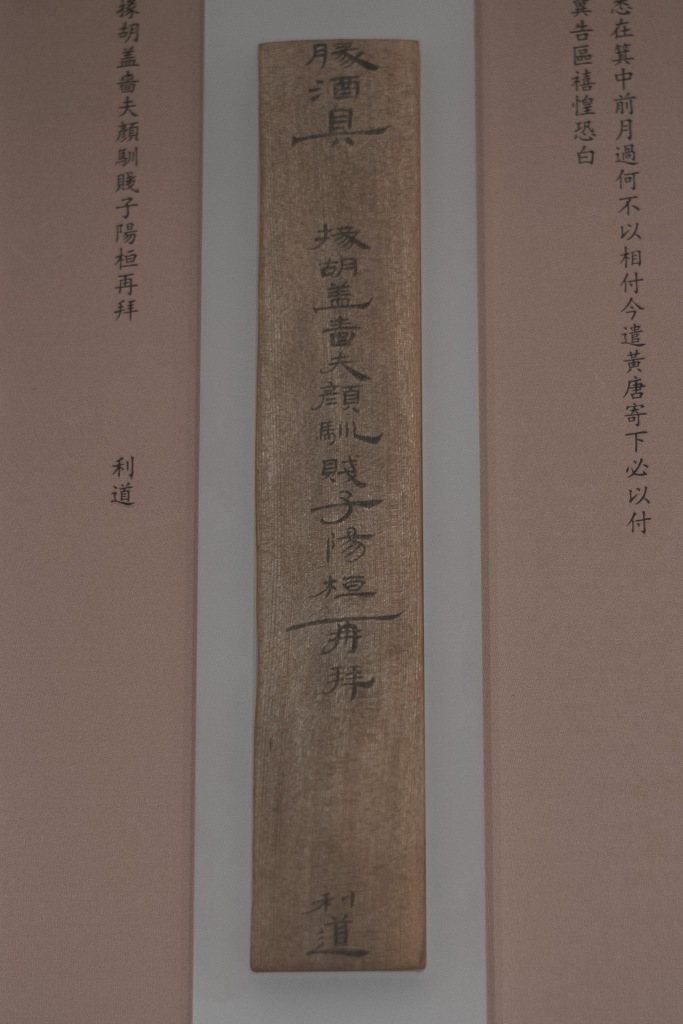 悉在箕中前月過何不以相付今遣黃唐寄下必以付
告區禧惶恐白
豚酒具 掾胡盖嗇夫顏馴賤子陽桓再拜 利道
掾胡盖嗇夫顏馴賤子陽桓再拜 利道